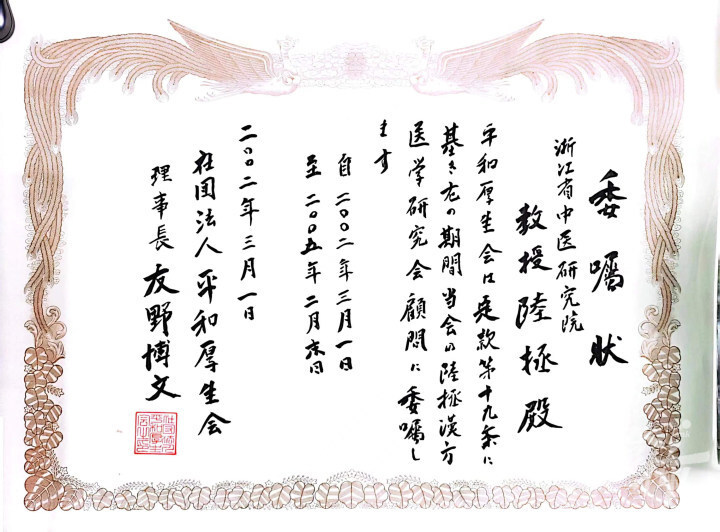 委嘱状
浙江省中医研究院
教授陸拯殿
平和厚生会は定款第十九条に
基き左の期間当会の陸拯漢方
医学研究会顧問に委嘱し
ます
自二〇〇二年三月一日
至二〇〇五年二月末日
二〇〇二年三月一日
社団法人平和厚生会
理事長友野博文